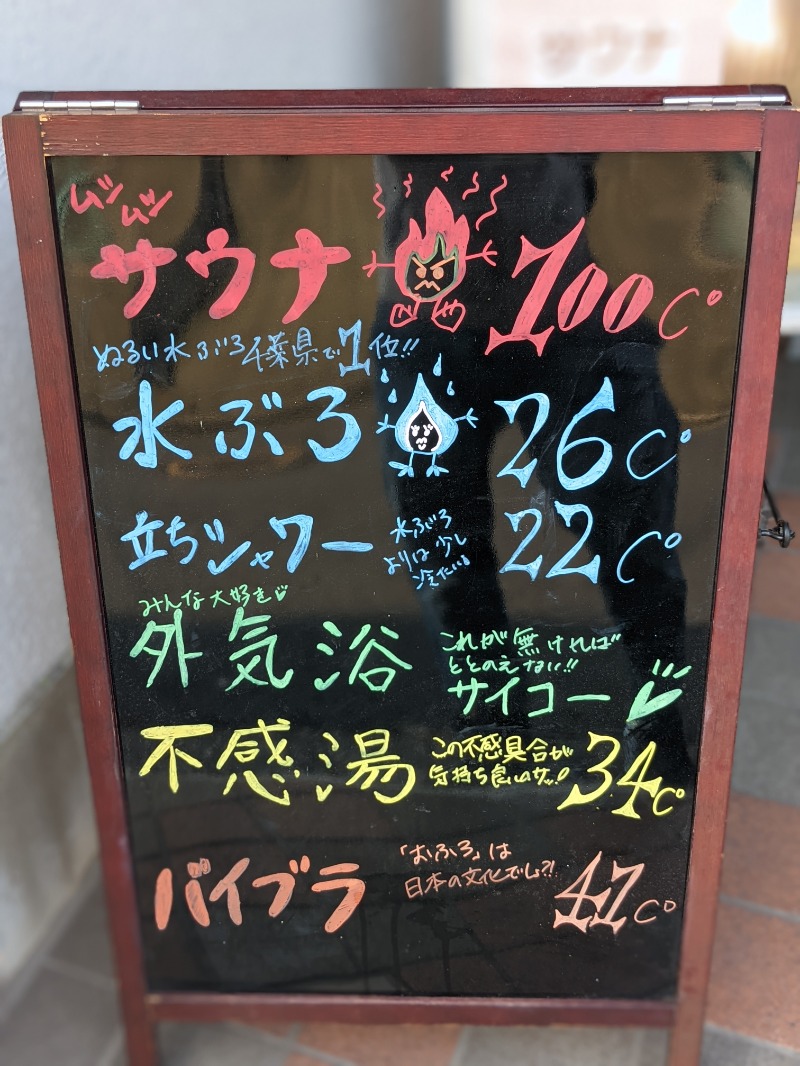 サウナ
ムシ
ムシ
サウナ 100C°
ぬるい水ぶろ 千葉県で1位!!
水ぶろ 26C°
立ちシャワー 水ぶろ
よりは少し
冷たいよ 22C°
みんな大好き♡
外気浴 これが無ければ
ととのえない!!
サイコー
不感湯 この不感具合が
気持ち良いんサッ! 34C°
バイブラ 「おふろ」は
日本の文化でしょ?! 41C°